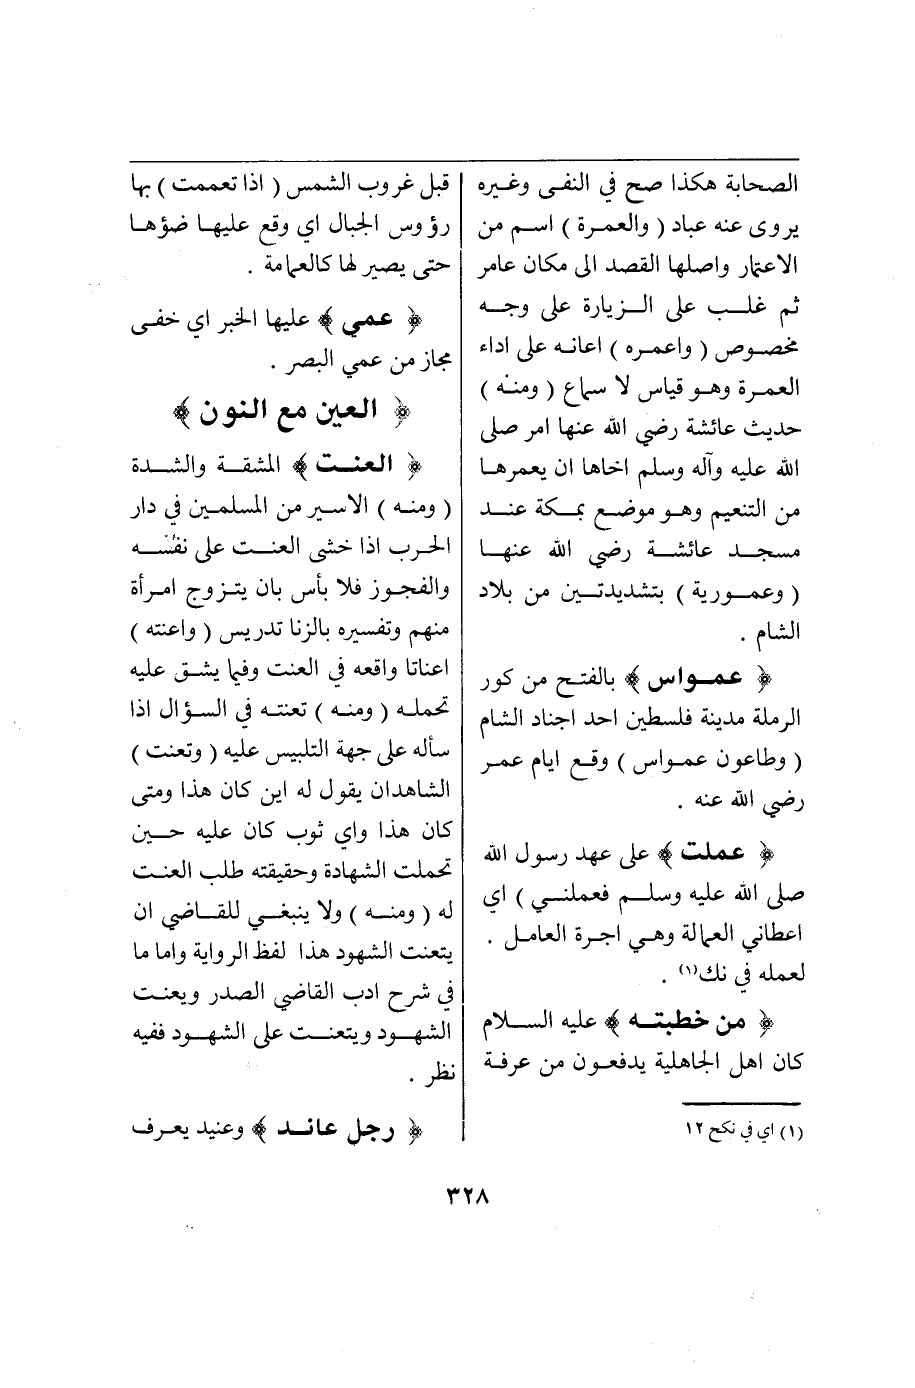 الصحابة هكذا صح في النفى وغيره
يروى عنه عباد ( والعمرة ) اسم من
الاعتمار واصلها القصد الى مكان عامر
ثم غلب على الزيارة على وجه
مخصوص ( واعمره ) اعانه على اداء
العمرة وهو قياس لا سماع ( ومنه )
حديث عائشة رضي الله عنها امر صلى
الله عليه وآله وسلم اخاها ان يعمرها
من التنعيم وهو موضع بمكة عند
مسجد عائشة رضي الله عنها
( وعمورية ) بتشديدتين من بلاد
الشام .
﴿ عمواس ﴾ بالفتح من كور
الرملة مدينة فلسطين احد اجناد الشام
( وطاعون عمواس ) وقع ايام عمر
رضي الله عنه .
﴿ عملت ﴾ على عهد رسول الله
صلى الله عليه وسلم فعملني ) اي
اعطاني العمالة وهي اجرة العامل .
لعمله في نك(١) .
﴿ من خطبته ﴾ عليه السلام
كان اهل الجاهلية يدفعون من عرفة
(١) اي في نكح ١٢
قبل غروب الشمس ( اذا تعممت ) بها
رؤوس الجبال اي وقع عليها ضؤها
حتى يصير لها كالعمامة .
﴿ عمي ﴾ عليها الخبر اي خفى
مجاز من عمي البصر .
﴿ العين مع النون ﴾
﴿ العنت ﴾ المشقة والشدة
( ومنه ) الاسير من المسلمين في دار
الحرب اذا خشى العنت على نفسه
والفجوز فلا بأس بان يتزوج امرأة
منهم وتفسيره بالزنا تدريس ( واعنته )
اعناتا واقعه في العنت وفيما يشق عليه
تحمله ( ومنه ) تعنته في السؤال اذا
سأله على جهة التلبيس عليه ( وتعنت )
الشاهدان يقول له اين كان هذا ومتى
كان هذا واي ثوب كان عليه حين
تحملت الشهادة وحقيقته طلب العنت
له ( ومنه ) ولا ينبغي للقاضي ان
يتعنت الشهود هذا لفظ الرواية واما ما
في شرح ادب القاضي الصدر ويعنت
الشهود ويتعنت على الشهود ففيه
نظر .
﴿ رجل عاند ﴾ وعنيد يعرف
٣٢٨